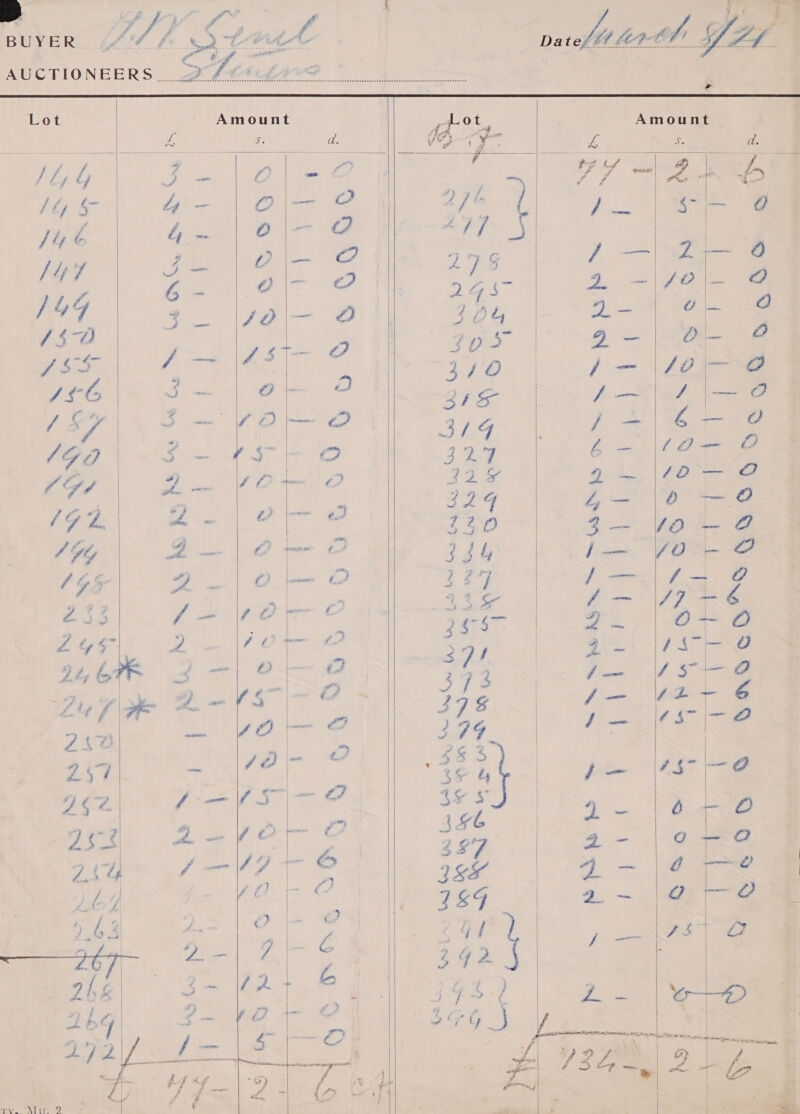 BUYER
Date March 8/21
AUCTIONEERS Stevens
Lot Amount
£ s. d.
144 3 - 0 - 0
145 4 - 0 - 0
146 4 - 0 - 0
147 3 - 0 - 0
149 6 - 0 - 0
150 3 - 10 - 0
155 1 - 15 - 0
156 3 - 0 - 0
187 3 - 10 - 0
190 3 - 15 - 0
191 2 - 10 - 0
192 2 - 0 - 0
194 2 - 0 - 0
198 2 - 0 - 0
233 1 - 10 - 0
245 2 - 10 - 0
246* 3 - 0 - 0
247* 2 - 15 - 0
250 - 10 - 0
251 - 10 - 0
252 1 - 15 - 0
253 2 - 10 - 0
254 1 - 19 - 6
262 3 - 10 - 0
263 2 - 0 - 0
267 2 - 9 - 6
268 3 - 12 - 6
269 2 - 10 - 0
272 1 - 5 - 0
£ 77 - 2 - 6
Lot Amount
£ s. d.
B.F. 77 - 2 - 6
276
277 } 1 - 5 - 0
278 1 - 2 - 0
295 2 - 10 - 0
304 2 - 0 - 0
305 2 - 0 - 0
310 1 - 10 - 0
318 1 - 1 - 0
319 1 - 6 - 0
327 6 - 10 - 0
328 2 - 10 - 0
329 4 - 0 - 0
330 3 - 10 - 0
334 1 - 10 - 0
337 1 - 1 - 0
338 1 - 17 - 6
355 2 - 0 - 0
371 2 - 15 - 0
373 1 - 15 - 0
378 1 - 12 - 6
379 1 - 15 - 0
383
384 } 1 - 15 - 0
385
386 2 - 0 - 0
387 2 - 0 - 0
388 2 - 0 - 0
389 2 - 0 - 0
391
392 } 1 - 15 - 0
393
394 } 2 - 0 - 0
£ 134 - 2 - 6